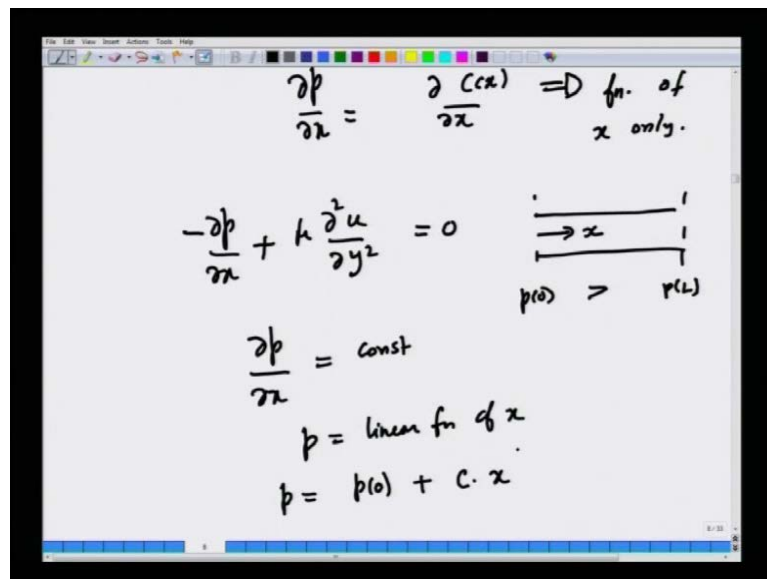 File Edit View Insert Actions Tools Help
∂p/∂x = ∂ C(x)/∂x ⇒ fn. of x only.
-∂p/∂x + μ ∂²u/∂y² = 0
→ x
p(0) > p(L)
∂p/∂x = const
p = linear fn of x.
p = p(0) + C. x
6